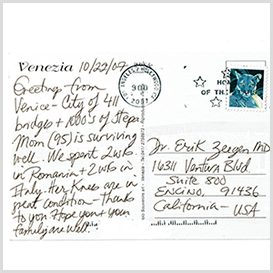 Venezia 10/22/07
Greetings from
Venice - City of 411
bridges + 1000's of steps
Mom (95) is surviving
well. We spent 2wks
in Romania + 2wks in
Italy. Her Knees are in
great condition - Thanks
to you Hope you + your
family are well.
LOS ANGELES
9
2007
HO
OF TH
USA
Dr. Erik Zeegen MD
16311 Ventura Blvd
Suite 800
ENCINO, 91436
California -
USA